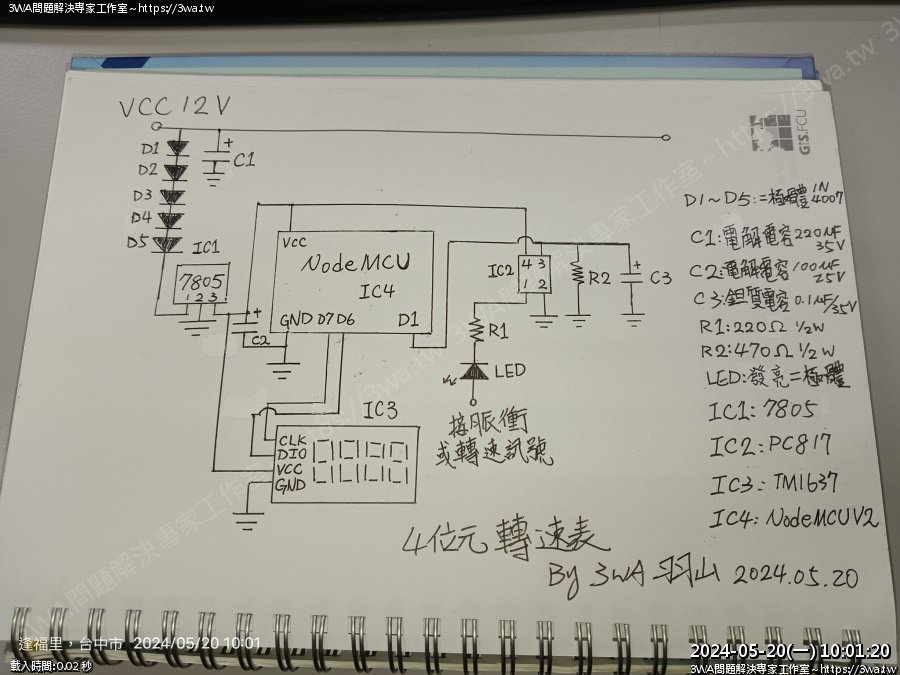 3WA問題解決專家工作室~https://3wa.tw
GIS.FCU
VCC 12V
D1
D2
D3
D4
D5
C1
IC1
7805
1 2 3
C2
VCC
NodeMCU
IC4
GND D7 D6 D1
IC2
4 3
1 2
R2
C3
R1
LED
接脈衝
或轉速訊號
IC3
CLK
DIO
VCC
GND
D1~D5:二極體 1N4007
C1:電解電容 220uF 35V
C2:電解電容 100uF 25V
C3:鉭質電容 0.1uF/35V
R1:220Ω 1/2W
R2:470Ω 1/2W
LED:發亮二極體
IC1:7805
IC2:PC817
IC3:TM1637
IC4:NodeMCUV2
4位元 轉速表
By 3WA 羽山 2024.05.20
逢福里,台中市 2024/05/20 10:01
載入時間:0.02 秒
2024-05-20(一) 10:01:20
3WA問題解決專家工作室~https://3wa.tw